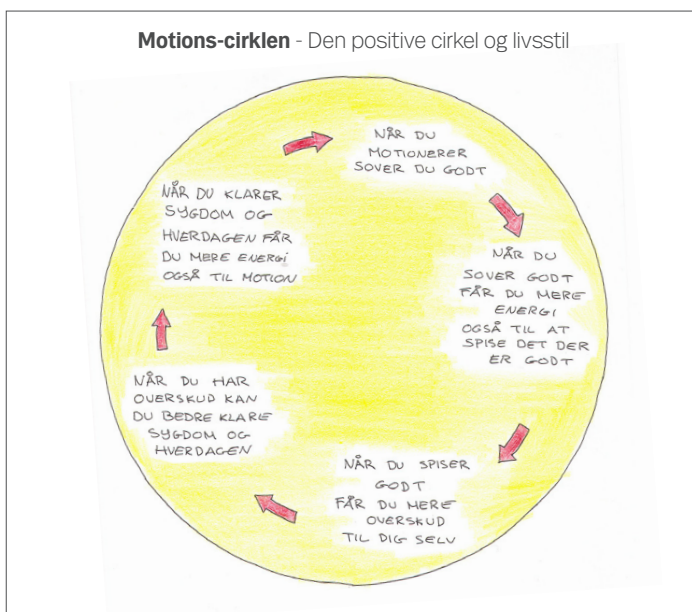 Motions-cirklen - Den positive cirkel og livsstil
NÅR DU
MOTIONERER
SOVER DU GODT
NÅR DU
SOVER GODT
FÅR DU MERE
ENERGI
OGSÅ TIL AT
SPISE DET DER
ER GODT
NÅR DU SPISER
GODT
FÅR DU MERE
OVERSKUD
TIL DIG SELV
NÅR DU HAR
OVERSKUD KAN
DU BEDRE KLARE
SYGDOM OG
HVERDAGEN
NÅR DU KLARER
SYGDOM OG
HVERDAGEN FÅR
DU MERE ENERGI
OGSÅ TIL MOTION